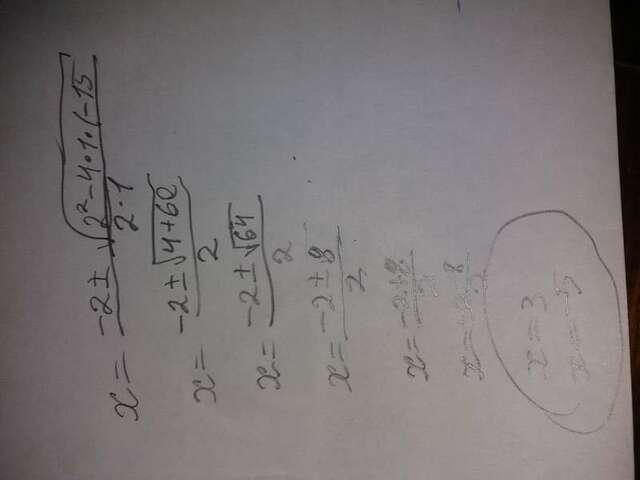 x = (-2 ± √(2² - 4·1·(-15))/(2·1)
x = (-2 ± √(4+60))/2
x = (-2 ± √64)/2
x = (-2 ± 8)/2
x = (-2+8)/2
x = (-2-8)/2
x = 3
x = -5